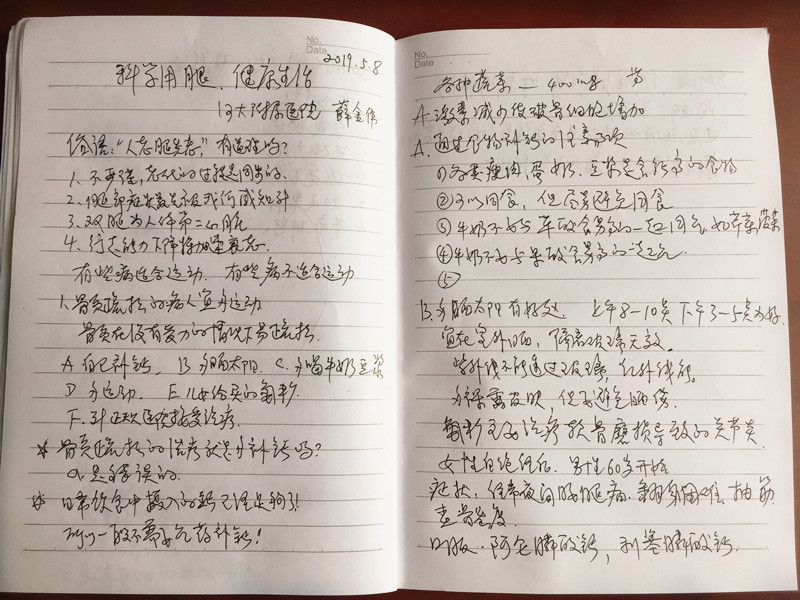 No.
Date
2019.5.8
科学用腿、健康生活
河大附属医院 薛金伟
俗话:"人老腿先老",有道理吗?
1、不要强,老化的过程是同步的.
2、腿部症状最先被我们感知到
3、双腿为人体第二心脏
4、行走能力下降将加速衰老.
有些病适合运动. 有些病不适合运动
1、骨质疏松的病人宜多运动
骨质在没有受力的情况下易疏松.
A 自己补钙. B 多晒太阳. C. 多喝牛奶豆浆
D 多运动. E. 儿女给买的氨糖.
F. 到正规医院接受治疗.
* 骨质疏松的治疗就是补钙吗?
a. 是错误的.
* 日常饮食中摄入的钙已经足够了!
所以一般不需要允药补钙!
No.
Date
各种蔬菜 — 400mg 芳
A. 激素减少使破骨细胞增加
A. 通过食物补钙的注意事项
①各类瘦肉,蛋奶、豆浆是含钙高的食物
②可以同食,但尽量避免同食
③牛奶不好与草酸含量高的一起同食,如芹菜菠菜
④牛奶不与果酸含量高的
⑤
B. 多晒太阳有好处 上午8-10点 下午3-5点为好.
宜在室外晒,隔着玻璃无效。
紫外线不能透过玻璃,红外线能。
多裸露皮肤,但要避免晒伤.
氨糖主要治疗软骨磨损导致的关节炎.
女性自绝经后. 男性60岁开始
症状:经常夜间 腿痛. 翻身困难 抽筋
查骨密度.
口服. 阿仑膦酸钙, 利塞膦酸钙.